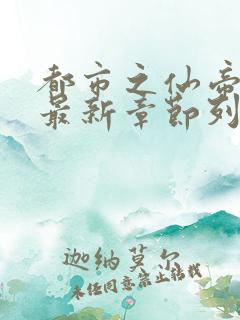 都市之仙帝
最新章节列
迦纳莫尔
未经同意禁止转载